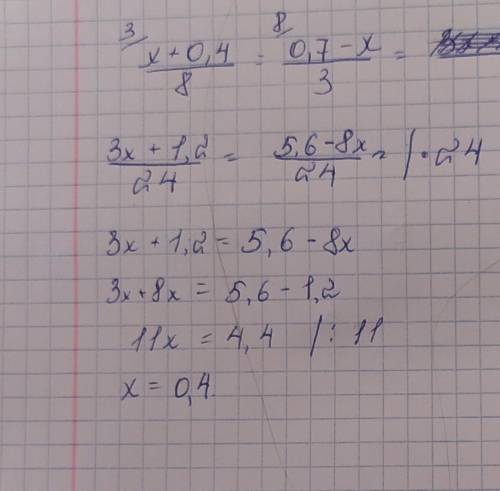 3/ (x + 0,4)/8 = 8/ (0,7 - x)/3 =
(3x + 1,2)/24 = (5,6 - 8x)/24 = | · 24
3x + 1,2 = 5,6 - 8x
3x + 8x = 5,6 - 1,2
11x = 4,4 | : 11
x = 0,4